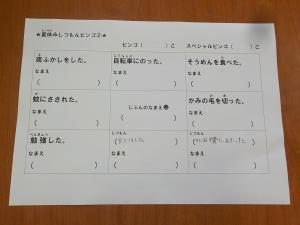 ★夏休みしつもんビンゴ②★
ビンゴ（　　）こ　スペシャルビンゴ（　　）こ
夜ふかしをした。
なまえ
（　　）
自転車にのった。
なまえ
（　　）
そうめんを食べた。
なまえ
（　　）
蚊にさされた。
なまえ
（　　）
じぶんのなまえ
かみの毛を切った。
なまえ
（　　）
べんきょう
勉強した。
なまえ
（　　）
しつもん
なまえ
（　　）
しつもん
なまえ
（　　）